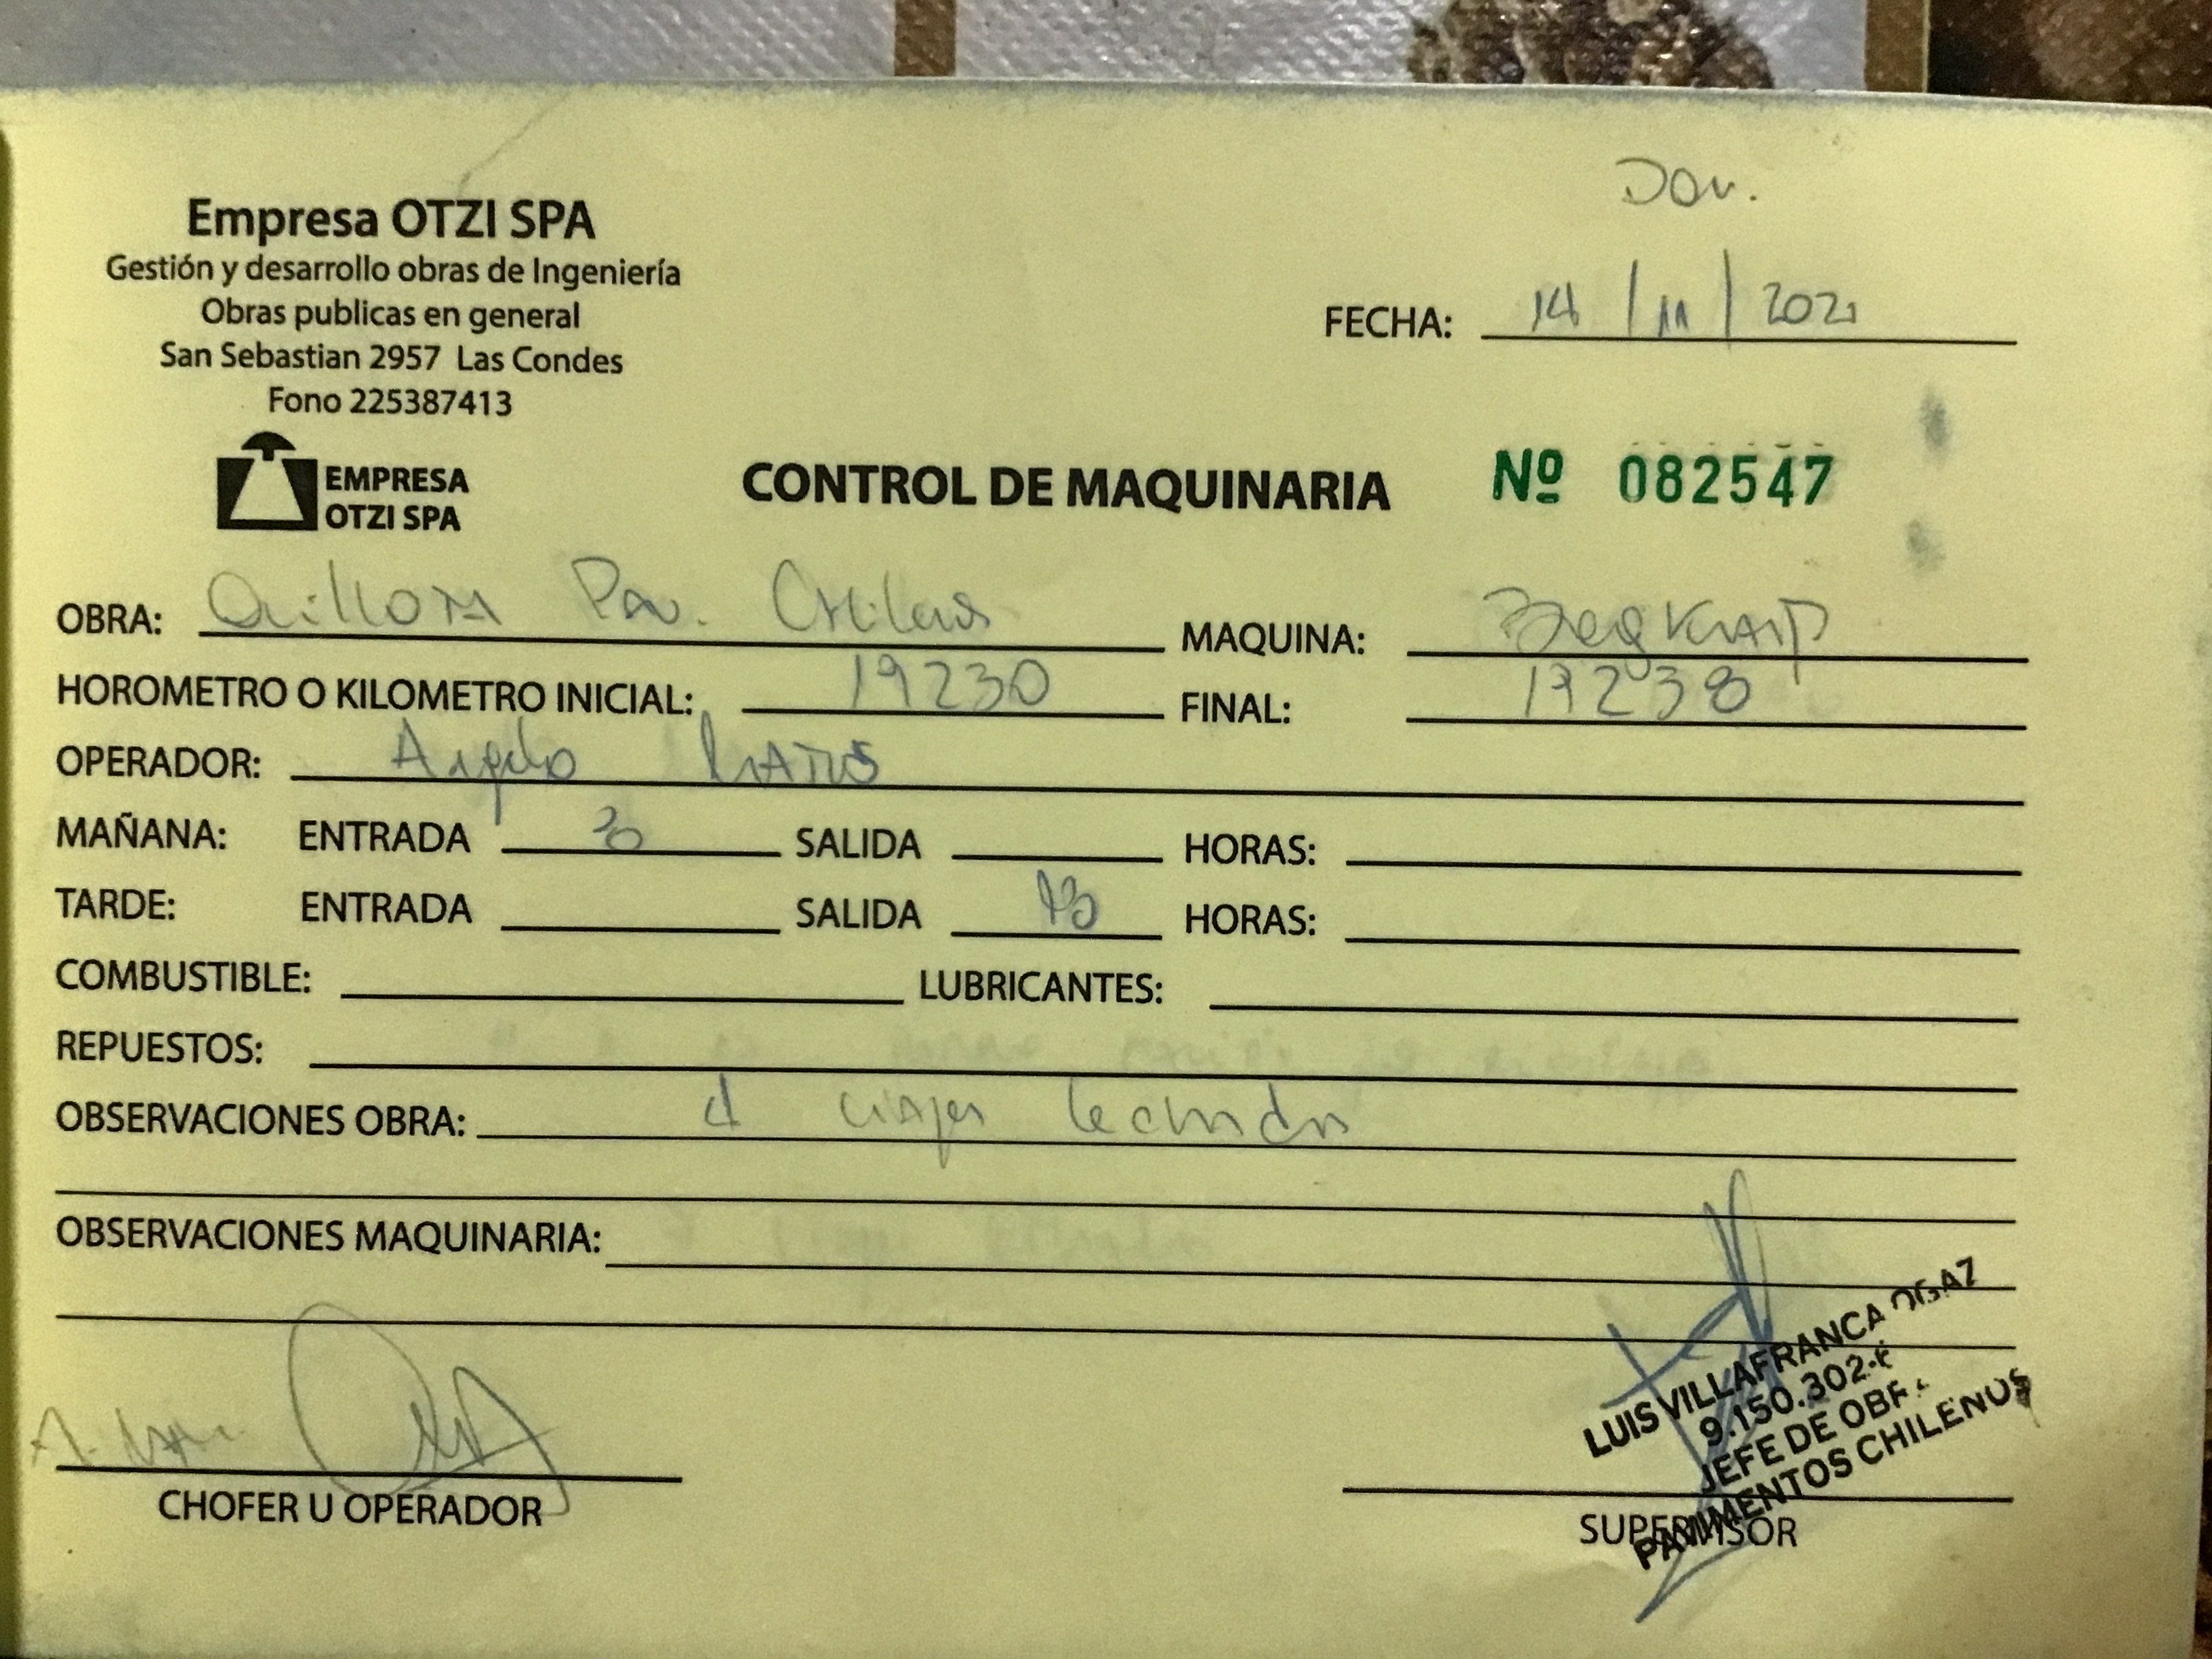 Dom.
Empresa OTZI SPA
Gestión y desarrollo obras de Ingeniería
Obras publicas en general
San Sebastian 2957 Las Condes
Fono 225387413
FECHA: 14 / 11 / 2021
EMPRESA
OTZI SPA
CONTROL DE MAQUINARIA Nº 082547
OBRA: Quillota Pav. Chilenos MAQUINA:
HOROMETRO O KILOMETRO INICIAL: 19230 FINAL: 19238
OPERADOR:
MAÑANA: ENTRADA SALIDA HORAS:
TARDE: ENTRADA SALIDA 18 HORAS:
COMBUSTIBLE: LUBRICANTES:
REPUESTOS:
OBSERVACIONES OBRA: 4 viajes lechada
OBSERVACIONES MAQUINARIA:
LUIS VILLAFRANCA DIAZ
9.150.302-K
JEFE DE OBRA
PAVIMENTOS CHILENOS
CHOFER U OPERADOR SUPERVISOR